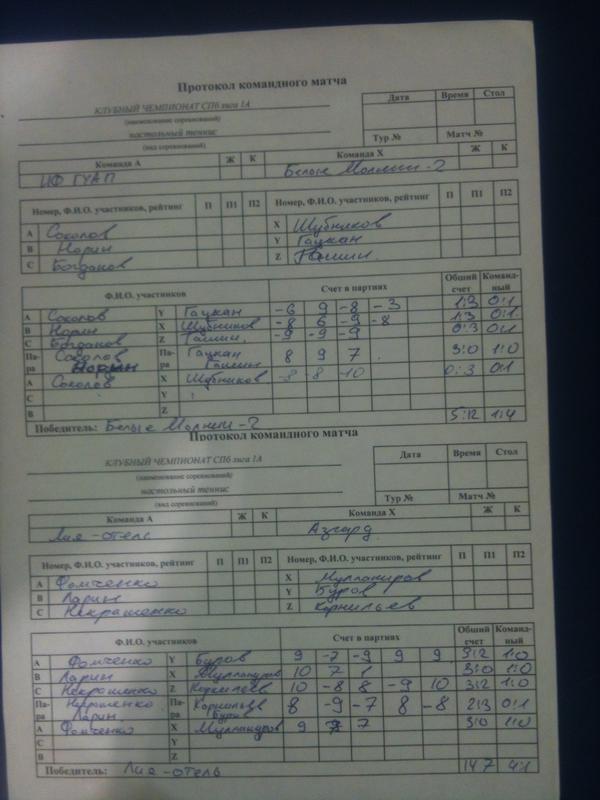 Протокол командного матча
КЛУБНЫЙ ЧЕМПИОНАТ СПб лига 1А
(наименование соревнований)
настольный теннис
(вид соревнований)
Дата Время Стол
Тур № Матч №
Команда А Ж К Команда Х Ж К
ИФ ГУАП Белые Молнии-2
Номер, Ф.И.О. участников, рейтинг П П1 П2 Номер, Ф.И.О. участников, рейтинг П П1 П2
А Соколов X Шубников
В Норин Y Гаукан
С Богданов Z
Ф.И.О. участников Счет в партиях Общий счет Команд-ный
А Соколов Y Гаукан -6 9 -8 -3 1:3 0:1
В Норин X Шубников -8 6 -9 -8 1:3 0:1
С Богданов Z -9 -9 -9 0:3 0:1
Па-ра Соколов Норин Па-ра Гаукан 8 9 7 3:0 1:0
А Соколов X Шубников -8 -8 -10 0:3 0:1
С Y
В Z 5:12 1:4
Победитель: Белые Молнии-2
Протокол командного матча
КЛУБНЫЙ ЧЕМПИОНАТ СПб лига 1А
(наименование соревнований)
настольный теннис
(вид соревнований)
Дата Время Стол
Тур № Матч №
Команда А Ж К Команда Х Ж К
Лия-отель Азгард
Номер, Ф.И.О. участников, рейтинг П П1 П2 Номер, Ф.И.О. участников, рейтинг П П1 П2
А Фомченко X
В Ларин Y Буров
С Некрашенко Z Корнильев
Ф.И.О. участников Счет в партиях Общий счет Команд-ный
А Фомченко Y Буров 9 -7 -9 9 9 3:2 1:0
В Ларин X 10 7 1 3:0 1:0
С Некрашенко Z Корнильев 10 -8 8 -9 10 3:2 1:0
Па-ра Некрашенко Ларин Па-ра Корнильев Буров 8 -9 -7 8 -8 2:3 0:1
А Фомченко X 9 7 3:0 1:0
С Y
В Z 14:7 4:1
Победитель: Лия-отель